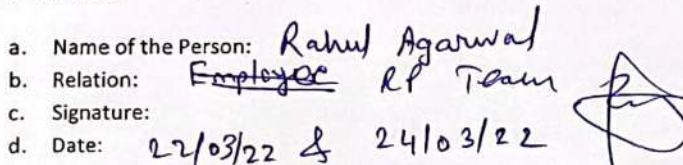 a. Name of the Person: Rahul Agarwal
b. Relation: Employee RP Team
c. Signature:
d. Date: 22/03/22 & 24/03/22